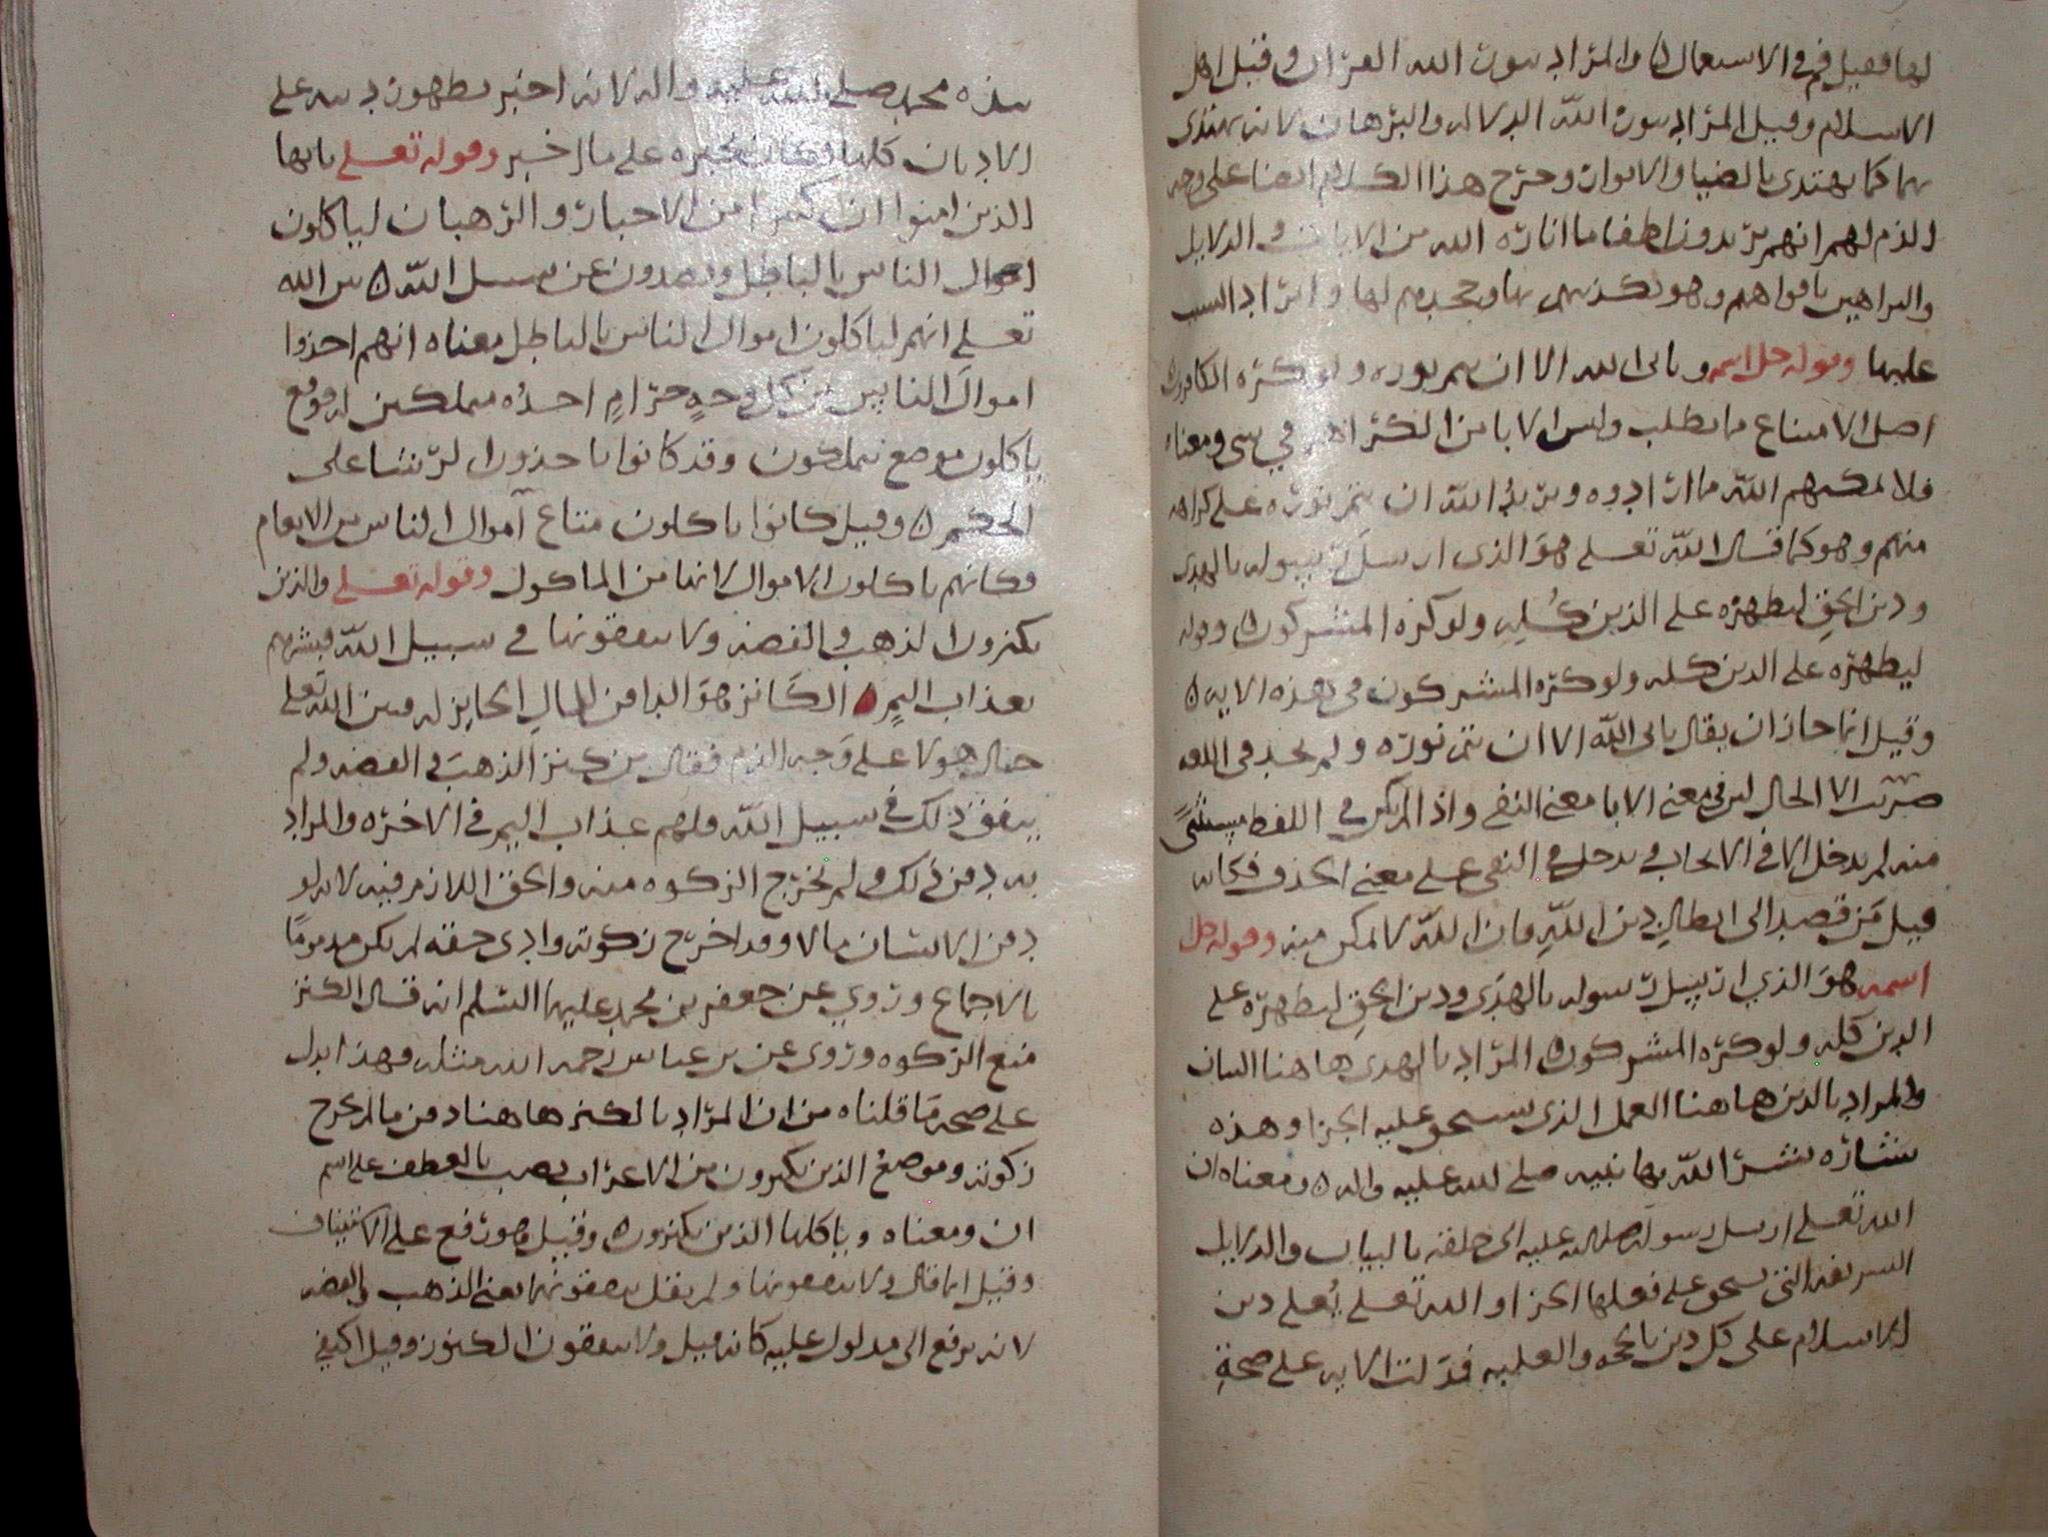 لها فقيل فم في الاستعمال ۞ والمراد بنور الله القران وقيل اهل
الاسلام وقيل المراد بنور الله الدلاله والبرهان لانه يهتدى
بهما كما يهتدى بالضيا والانوار وخرج هذا الكلام ايضا على وجه
الذم لهم انهم يريدون اطفا ما اناره الله من الايات والدلايل
والبراهين بافواههم وهو تكذيبهم بها وجحدهم لها وايراد السب
عليها وقوله جل اسمه ويابى الله الا ان يتم نوره ولو كره الكافرون
اصل الامتناع مما يطلب وليس الابا من الكراهه في شى ومعناه
فلا يمكنهم الله مما ارادوه ويريد الله ان يتم نوره على كراهه
منهم وهو كما قال الله تعلى هو الذى ارسل رسوله بالهدى
ودين الحق ليظهره على الدين كله ولو كره المشركون ۞ وقوله
ليظهره على الدين كله ولو كره المشركون في هذه الايه ۞
وقيل انما جاز ان يقال يابى الله الا ان يتم نوره ولم يجز في اللغه
ضربت الا الحال لان في معنى الابا معنى النفي واذا لم يكن في اللفظ مستثنى
منه لم يدخل الا في الايجاب ويدخل في النفي على معنى الحذف فكانه
قيل من قصد الى ابطال دين الله فان الله لا يمكن منه وقوله جل
اسمه هو الذي ارسل رسوله بالهدى ودين الحق ليظهره على
الدين كله ولو كره المشركون ۞ المراد بالهدى هاهنا البيان
والمراد بالدين هاهنا العمل الذى يستحق عليه الجزا وهذه
بشاره بشر الله بها نبيه صلى الله عليه واله ۞ ومعناه ان
الله تعلى ارسل رسوله صلى الله عليه الى خلقه بالبيان والدلايل
الشريفه التى يستحق على فعلها الجزا والله تعلى يعلى دين
الاسلام على كل دين بالحجه والغلبه فدلت الايه على صحة
نبوه محمد صلى الله عليه واله لانه اخبر بظهور دينه على
الاديان كلها وكان مخبره على ما اخبر وقوله تعلى يايها
الذين امنوا ان كثيرا من الاحبار والرهبان لياكلون
اموال الناس بالباطل ويصدون عن سبيل الله ۞ بين الله
تعلى انهم لياكلون اموال الناس بالباطل معناه انهم اخذوا
اموال الناس من كل وجه حرام اخذه متملكين له فوقع
ياكلون موضع يتملكون وقد كانوا ياخذون الرشا على
الحكم ۞ وقيل كانوا ياكلون متاع اموال الناس من الانعام
فكانهم ياكلون الاموال لانها من الماكول وقوله تعلى والذين
يكنزون الذهب والفضه ولا ينفقونها في سبيل الله فبشرهم
بعذاب اليم ۞ الكانز هو من المال الحايز له فبين الله تعلى
حال هولا على وجه الذم فقال من كنز الذهب والفضه ولم
ينفق ذلك في سبيل الله ولهم عذاب اليم في الاخره والمراد
به دفن ذلك ولم يخرج الزكوه منه والحق اللازم فيه لانه لو
دفن الانسان مالا وقد اخرج زكوته وادى حقه لم يكن مذموما
بالاجماع وروي عن جعفر بن محمد عليهما السلم انه قال الكنز
منع الزكوه وروى عن بن عباس رحمه الله مثله وهذا يدل
على صحه ما قلناه من ان المراد بالكنز هاهنا دفن ما لم يخرج
زكوته وموضع الذين يكنزون من الاعراب نصب بالعطف على اسم
ان ومعناه وياكلها الذين يكنزون ۞ وقيل هو رفع على الاستيناف
وقيل انما قال ولا ينفقونها ولم يقل ينفقونهما يعنى الذهب والفضه
لانه يرفع الى مدلول عليه كانه قيل ولا ينفقون الكنوز وقيل اكتفى